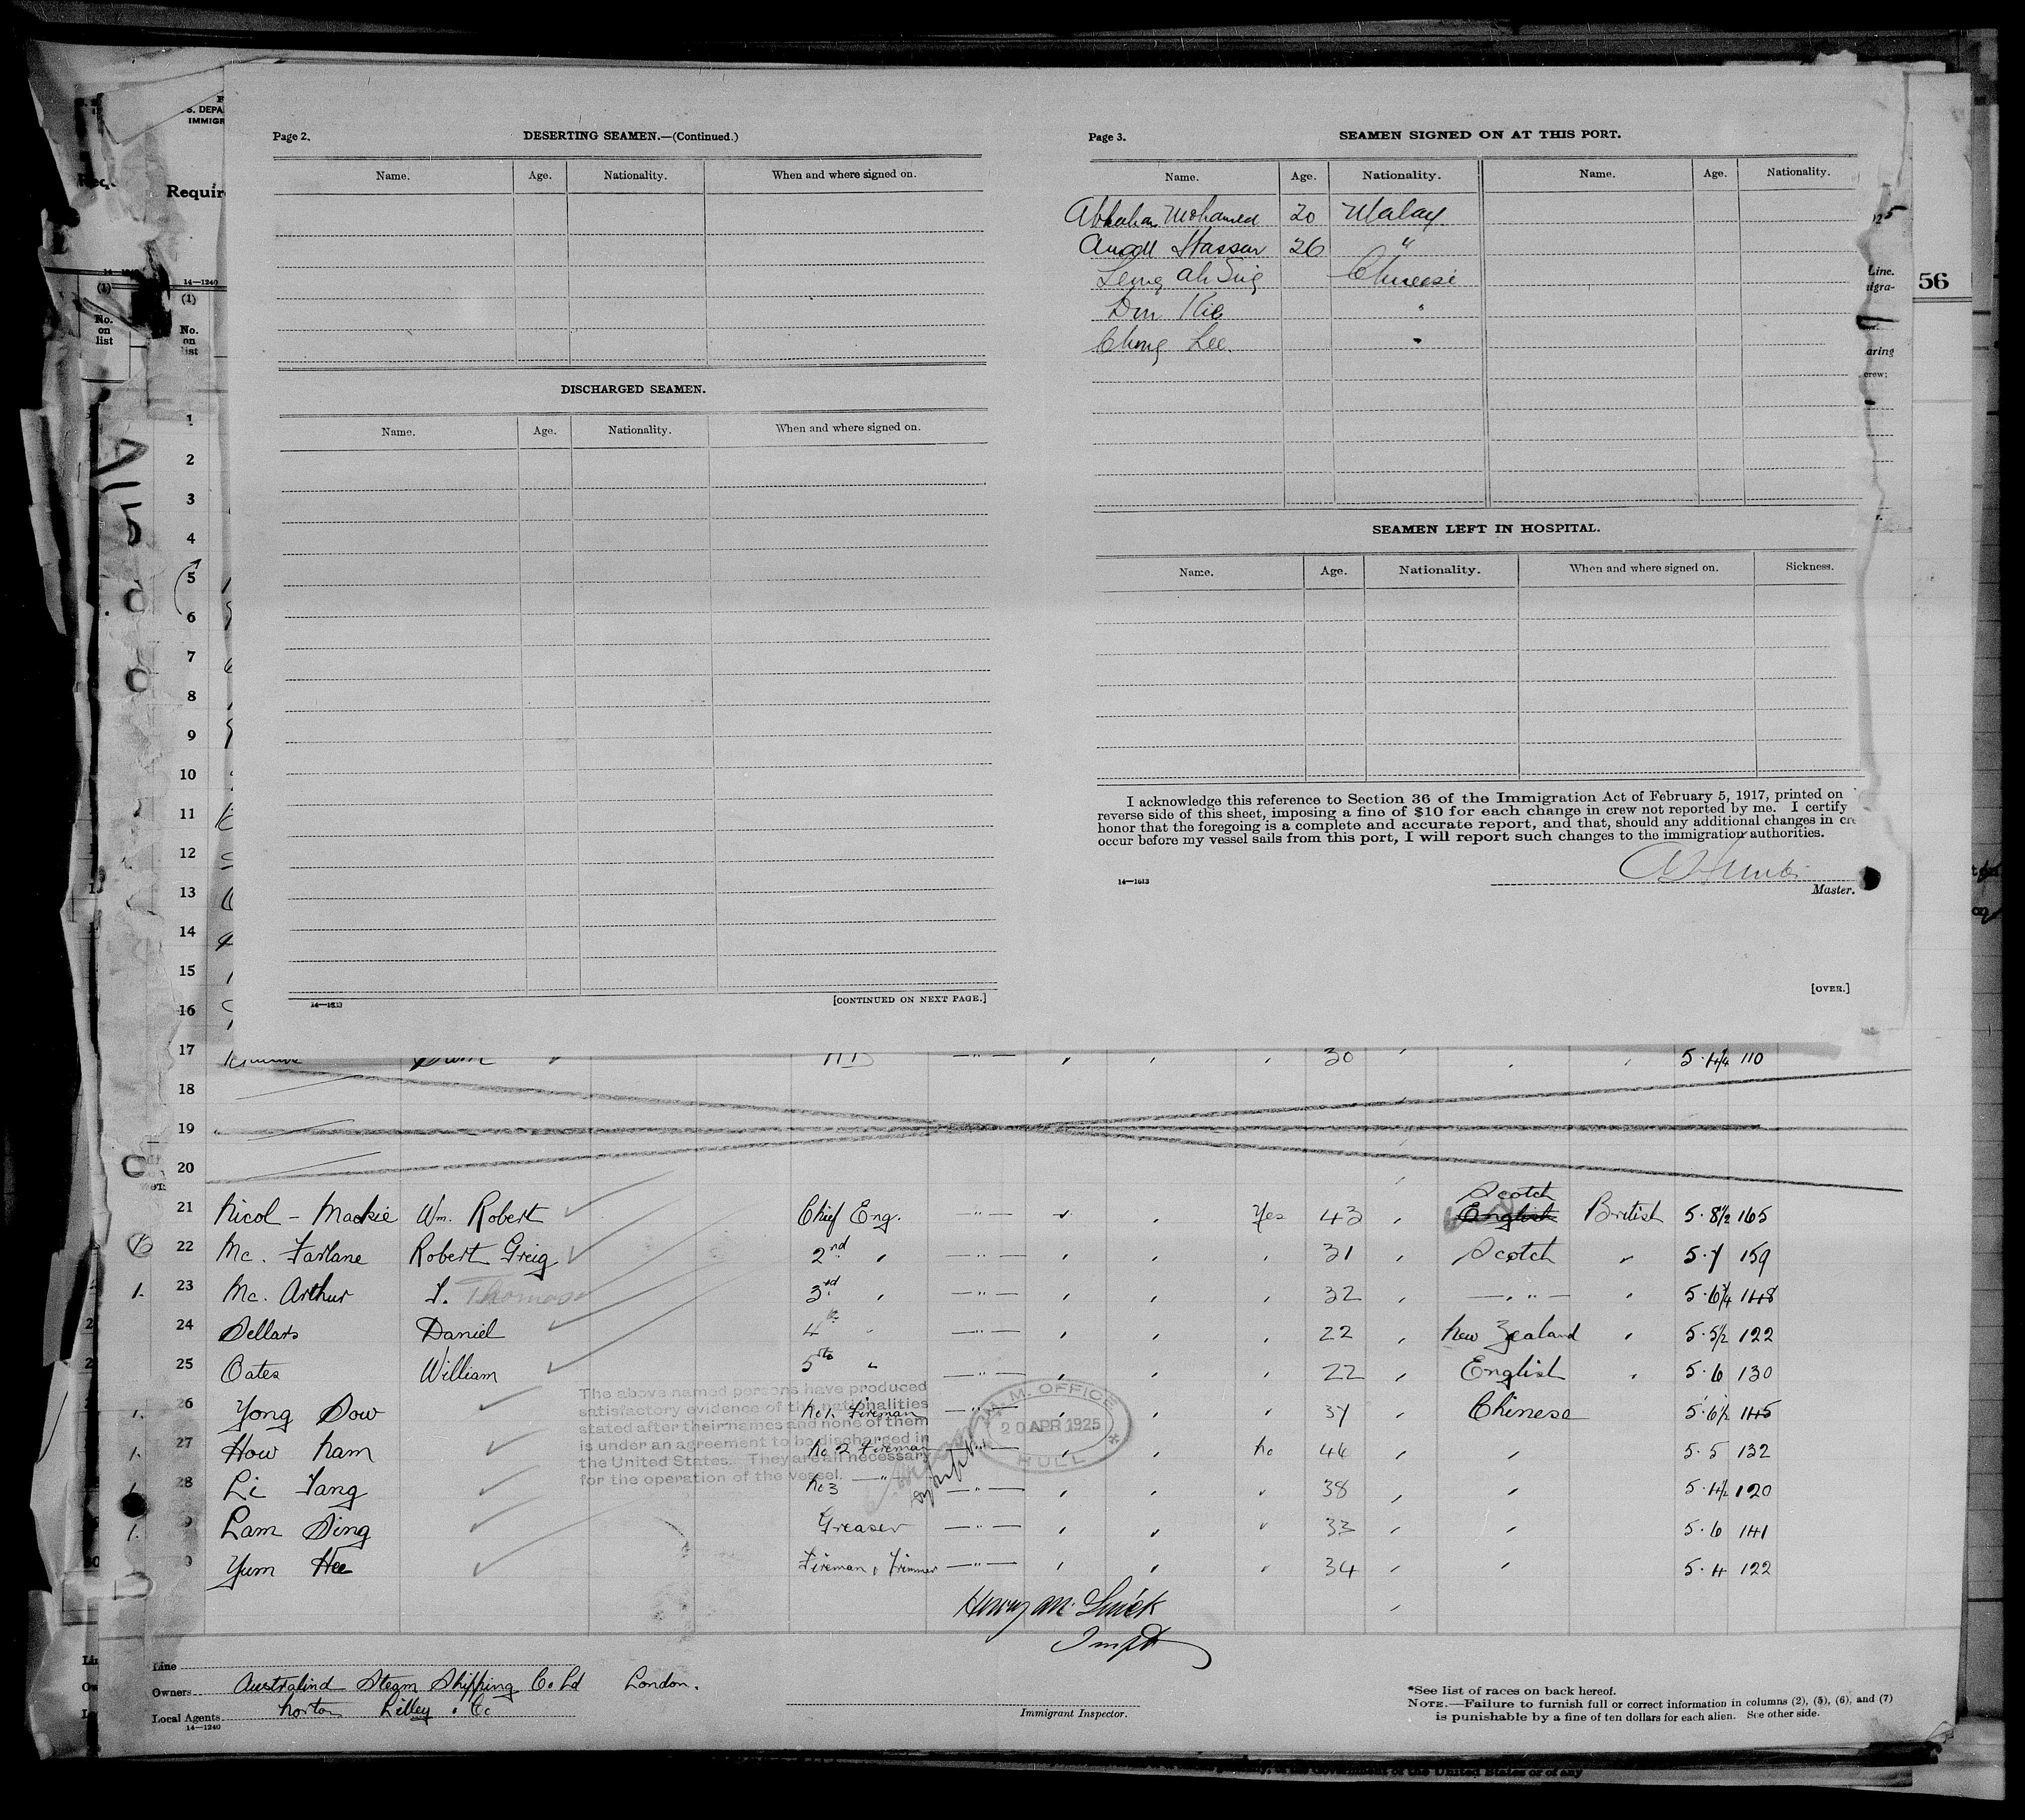 Page 2. DESERTING SEAMEN.—(Continued.)
Name. Age. Nationality. When and where signed on.
DISCHARGED SEAMEN.
Name. Age. Nationality. When and where signed on.
14—1613 [CONTINUED ON NEXT PAGE.]
Page 3. SEAMEN SIGNED ON AT THIS PORT.
Name. Age. Nationality. Name. Age. Nationality.
Mohamed 20 Malay.
Hassan 26 "
Ah Chinese
"
Lee. "
SEAMEN LEFT IN HOSPITAL.
Name. Age. Nationality. When and where signed on. Sickness.
I acknowledge this reference to Section 36 of the Immigration Act of February 5, 1917, printed on
reverse side of this sheet, imposing a fine of $10 for each change in crew not reported by me. I certify
honor that the foregoing is a complete and accurate report, and that, should any additional changes in cre
occur before my vessel sails from this port, I will report such changes to the immigration authorities.
14—1613
Master.
[OVER.]
S. DEPA
IMMIGR
Requir
14—1240
(1)
No.
on
list
(1)
No.
on
list
56
Line.
igra-
aring
crew;
1
2
3
4
5
6
7
8
9
10
11
12
13
14
15
16
17 30 5.4¼ 110
18
19
20
21 Nicol - Mackie Wm. Robert Chief Eng. —"— Yes 43 Scotch English British 5.8½ 165
22 Mc. Farlane Robert Greig 2nd 31 Scotch 5.7 159
23 Mc. Arthur T. Thomas 3rd —"— 32 —"— 5.6¾ 148
24 Sellars Daniel 4th —"— 22 New Zealand 5.5½ 122
25 Oates William 5th " —"— 22 English 5.6 130
26 Yong Sow No 1. Fireman —"— 37 Chinese 5.6½ 145
27 How Nam No 2 Fireman —"— No 46 5.5 132
28 Li Tang No 3 —"— —"— 38 5.4½ 120
9 Lam Sing Greaser —"— 33 5.6 141
0 Yum Hee Fireman & Trimmer —"— 34 5.4 122
The above named persons have produced
satisfactory evidence of the nationalities
stated after their names and none of them
is under an agreement to be discharged in
the United States. They are all necessary
for the operation of the vessel.
IMM. OFFICE
20 APR 1925
HULL
Line
Owners Australind Steam Shipping Co. Ld London.
Local Agents Norton Lilley & Co
14—1240
Immigrant Inspector.
*See list of races on back hereof.
NOTE.—Failure to furnish full or correct information in columns (2), (5), (6), and (7)
is punishable by a fine of ten dollars for each alien. See other side.